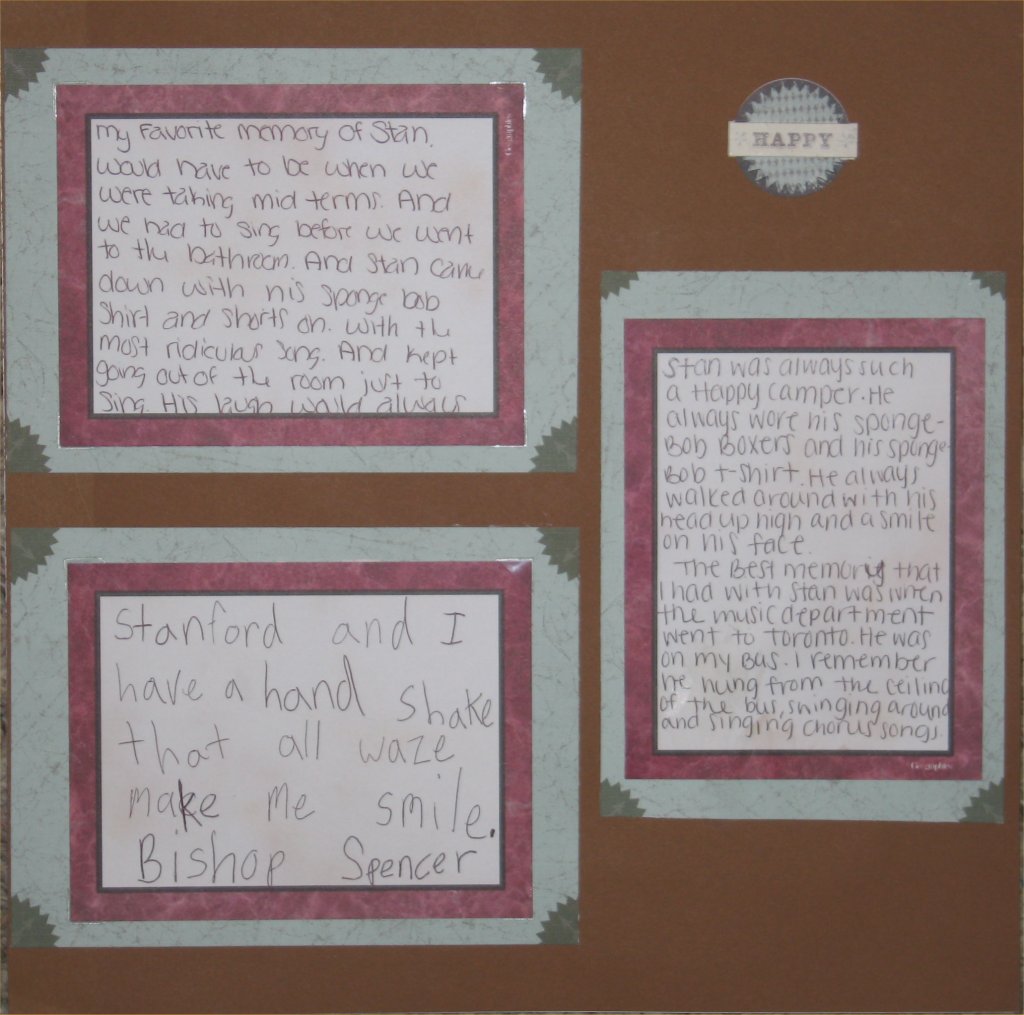 my Favorite memory of Stan.
would have to be when we
were taking mid terms. And
we had to sing before we went
to the bathroom. And Stan came
down with his sponge bob
Shirt and shorts on. with the
most ridiculas song. And kept
going out of the room just to
Sing. His laugh would always
Geographics
HAPPY
Stan was always such
a Happy camper. He
always wore his sponge-
Bob Boxers and his sponge-
Bob t-shirt. He always
walked around with his
head up high and a smile
on his face.
The Best memoriy that
I had with Stan was when
the music department
went to toronto. He was
on my Bus. I remember
he hung from the ceiling
of the bus, swinging around
and singing chorus songs.
Geographics
Stanford and I
have a hand shake
that all waze
make me smile.
Bishop Spencer